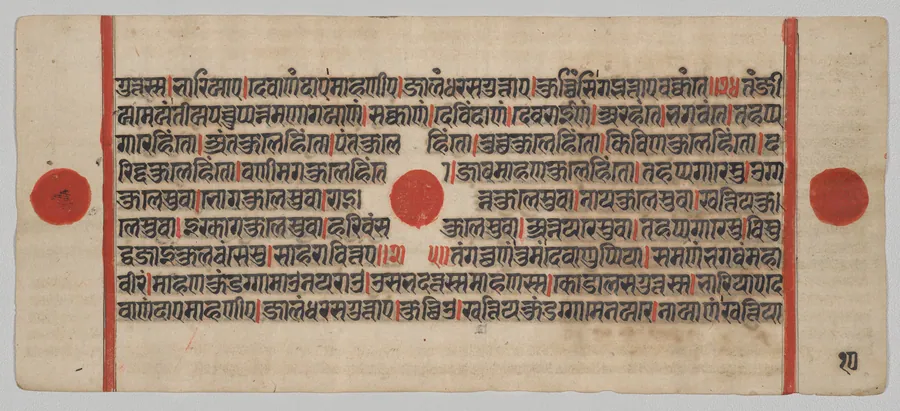 गुत्तस्स।भारिआए।देवाणंदाए माहणीए।जालंधरसगुत्ताए।कुच्छिंसि गब्भत्ताए वक्कंते॥२४ तं जी
अमेअं तीअपच्चुप्पन्नमणागयाणं।सक्काणं।देविंदाणं।देवराईणं।अरहंते।भगवंते।तहप्प
गारेहिंतो।अंतकुलेहिंतो।पंतकुलेहिंतो।तुच्छकुलेहिंतो।किविणकुलेहिंतो।द
रिद्दकुलेहिंतो।वणीमगकुलेहिंतो।जावमाहणकुलेहिंतो।तहप्पगारेसु।उग्ग
कुलेसुवा।भोगकुलेसुवा।राइन्नकुलेसुवा।नायकुलेसुवा।खत्तियकु
लेसुवा।इक्खागकुलेसुवा।हरिवंसकुलेसुवा।अन्नयरेसुवा।तहप्पगारेसु।विसु
द्धजाइकुलवंसेसु।साहरावित्तए॥२५॥तं गच्छणं तुमं देवाणुप्पिया।समणं भगवं महा
वीरं।माहणकुंडग्गामाउ नयराउ।उसभदत्तस्स माहणस्स।कोडालसगुत्तस्स।भारियाए दे
वाणंदाए माहणीए।जालंधरसगुत्ताए।कुच्छिउ।खत्तियकुंडग्गामे नयरे।नायाणं खत्तिया